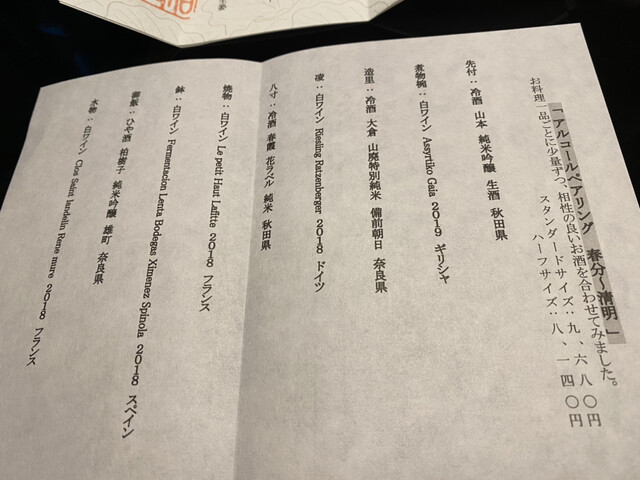 「アルコールペアリング　春分～清明」
お料理一品ごとに少量ずつ、相性の良いお酒を合わせてみました。
スタンダードサイズ：九、六八〇円
ハーフサイズ：八、一四〇円
先付：冷酒 山本 純米吟醸 生酒 秋田県
煮物椀：白ワイン Assyrtiko Gaia 2019 ギリシャ
造里：冷酒 大倉 山廃特別純米 備前朝日 奈良県
凌：白ワイン Riesling Ratzenberger 2018 ドイツ
八寸：冷酒 春霞 花ラベル 純米 秋田県
焼物：白ワイン Le petit Haut Lafitte 2018 フランス
鉢：白ワイン Fermentacion Lenta Bodegas Ximenez Spinola 2018 スペイン
御飯：ひや酒 柏樹子 純米吟醸 雄町 奈良県
水物：白ワイン Clos Saint landelin Rene mure 2018 フランス